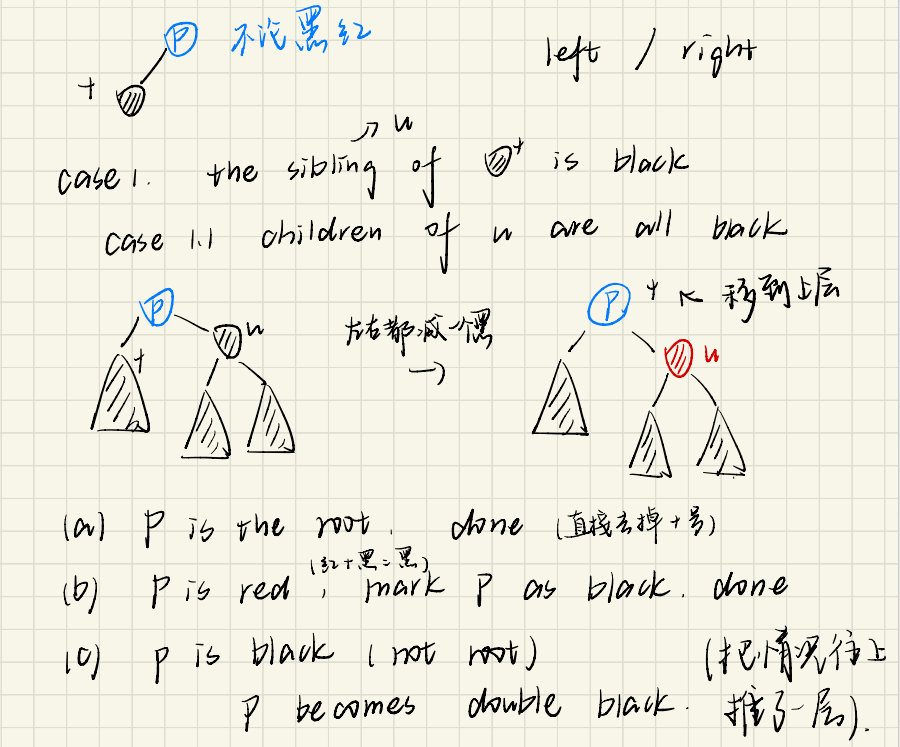 P 不论黑红
left / right
+
→ u
case 1. the sibling of + is black
case 1.1 children of u are all black
P + u 左右都减一个黑 → P + ↖ 移到上层 u
(a) P is the root. done (直接去掉+号)
(红+黑=黑)
(b) P is red, mark P as black. done
(c) P is black (not root) (把情况往上
P becomes double black. 推了一层).